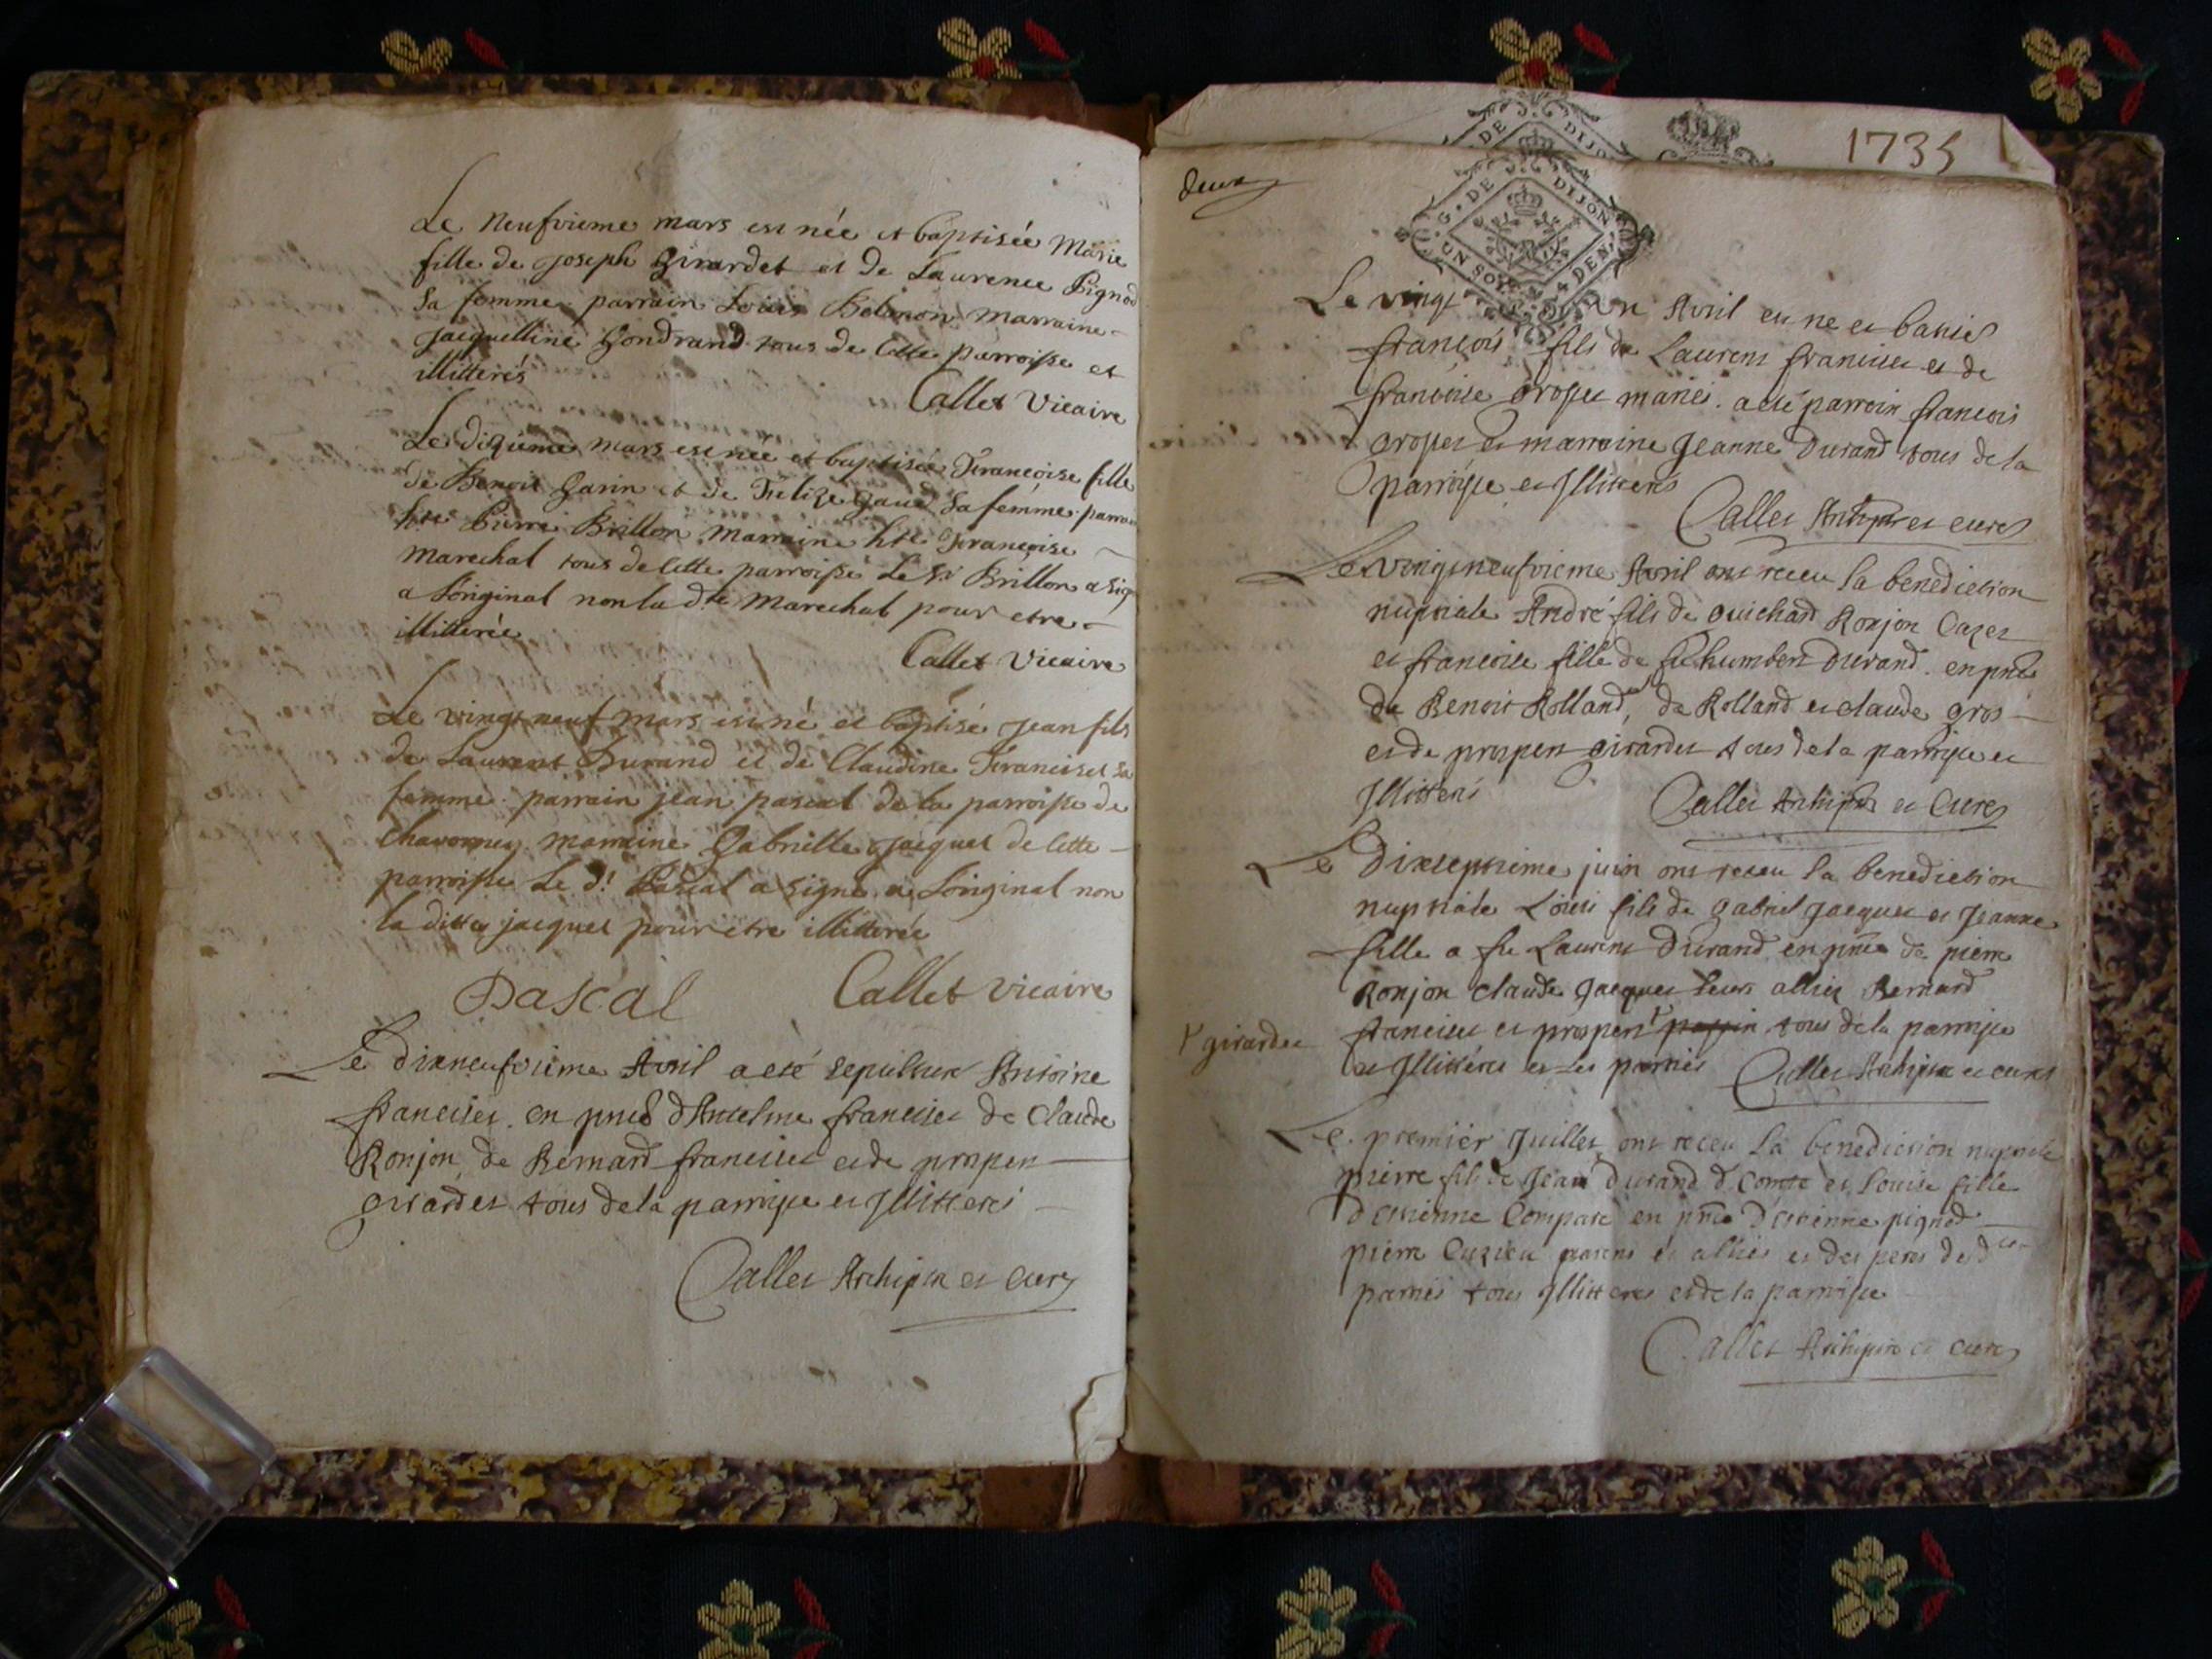 Le neufvieme mars est née et baptisée Marie
fille de joseph Girardet et de Laurence Pignod
sa femme parrain Louis Belmon marraine
Jacquelline Gondrand tous de cette parroisse et
illitterés
Callet Vicaire
Le dixieme mars est née et baptisée Françoise fille
de Benoit Garin et de Gaud sa femme parrain
hte Pierre Brillon marraine hte Françoise
Marechal tous de cette parroisse Le Sr Brillon a sig
a Loriginal non la dte Marechal pour etre
illitterée
Callet Vicaire
Le vingt neuf mars est né et baptisé jean fils
de Laurent Durand et de Claudine Franciset sa
femme parrain jean pascal de la parroisse de
chavornay marraine Gabrielle jacquet de cette
parroisse Le dt Pascal a signé a Loriginal non
la ditte jacquet pour etre illitterée
Pascal Callet vicaire
Le dixneufvieme Avril a eté sepulturé Antoine
franciset en pnce d'Antelme franciset de Claude
Ronjon de Bernard franciset et de prosper
girardet tous de la parroisse et Illitterés
Callet Archiptre et curé
1735
G. DE DIJON
UN SOL 4 DEN.
deux
Le vingt un Avril est né et batisé
françois fils de Laurent franciset et de
françoise grosset mariés. a eté parrein françois
grosset et marraine Jeanne Durand tous de la
parroisse et Illitterés
Callet Archiptre et curé
Le vingtneufvieme Avril ont receu la benediction
nuptiale André fils de guichard Ronjon Cazet
et françoise fille de fu humbert Durand. en pnce
de Benoit Rolland, de Rolland et claude gros
et de prosper girardet tous de la parroisse et
Illitterés Callet Archiptre et Curé
Le Dixseptieme juin ont receu la benediction
nuptiale Louis fils de gabriel Jacquet et Jeanne
fille a fu Laurent Durand en pnce de pierre
Ronjon claude Jacquet leurs alliez Bernard
girardet franciset et prosper tous de la parroisse
et Illitterés et les parties Callet Archiptre et curé
Le premier Juillet ont receu la benediction nuptiale
pierre fils de Jean Durand d Comte et Louise fille
d'estienne Compare en pnce d'estienne pignod
pierre Cuzieu parens et alliés et des peres des dtes
parties tous Illitteres et de la parroisse
Callet Archiptre et curé